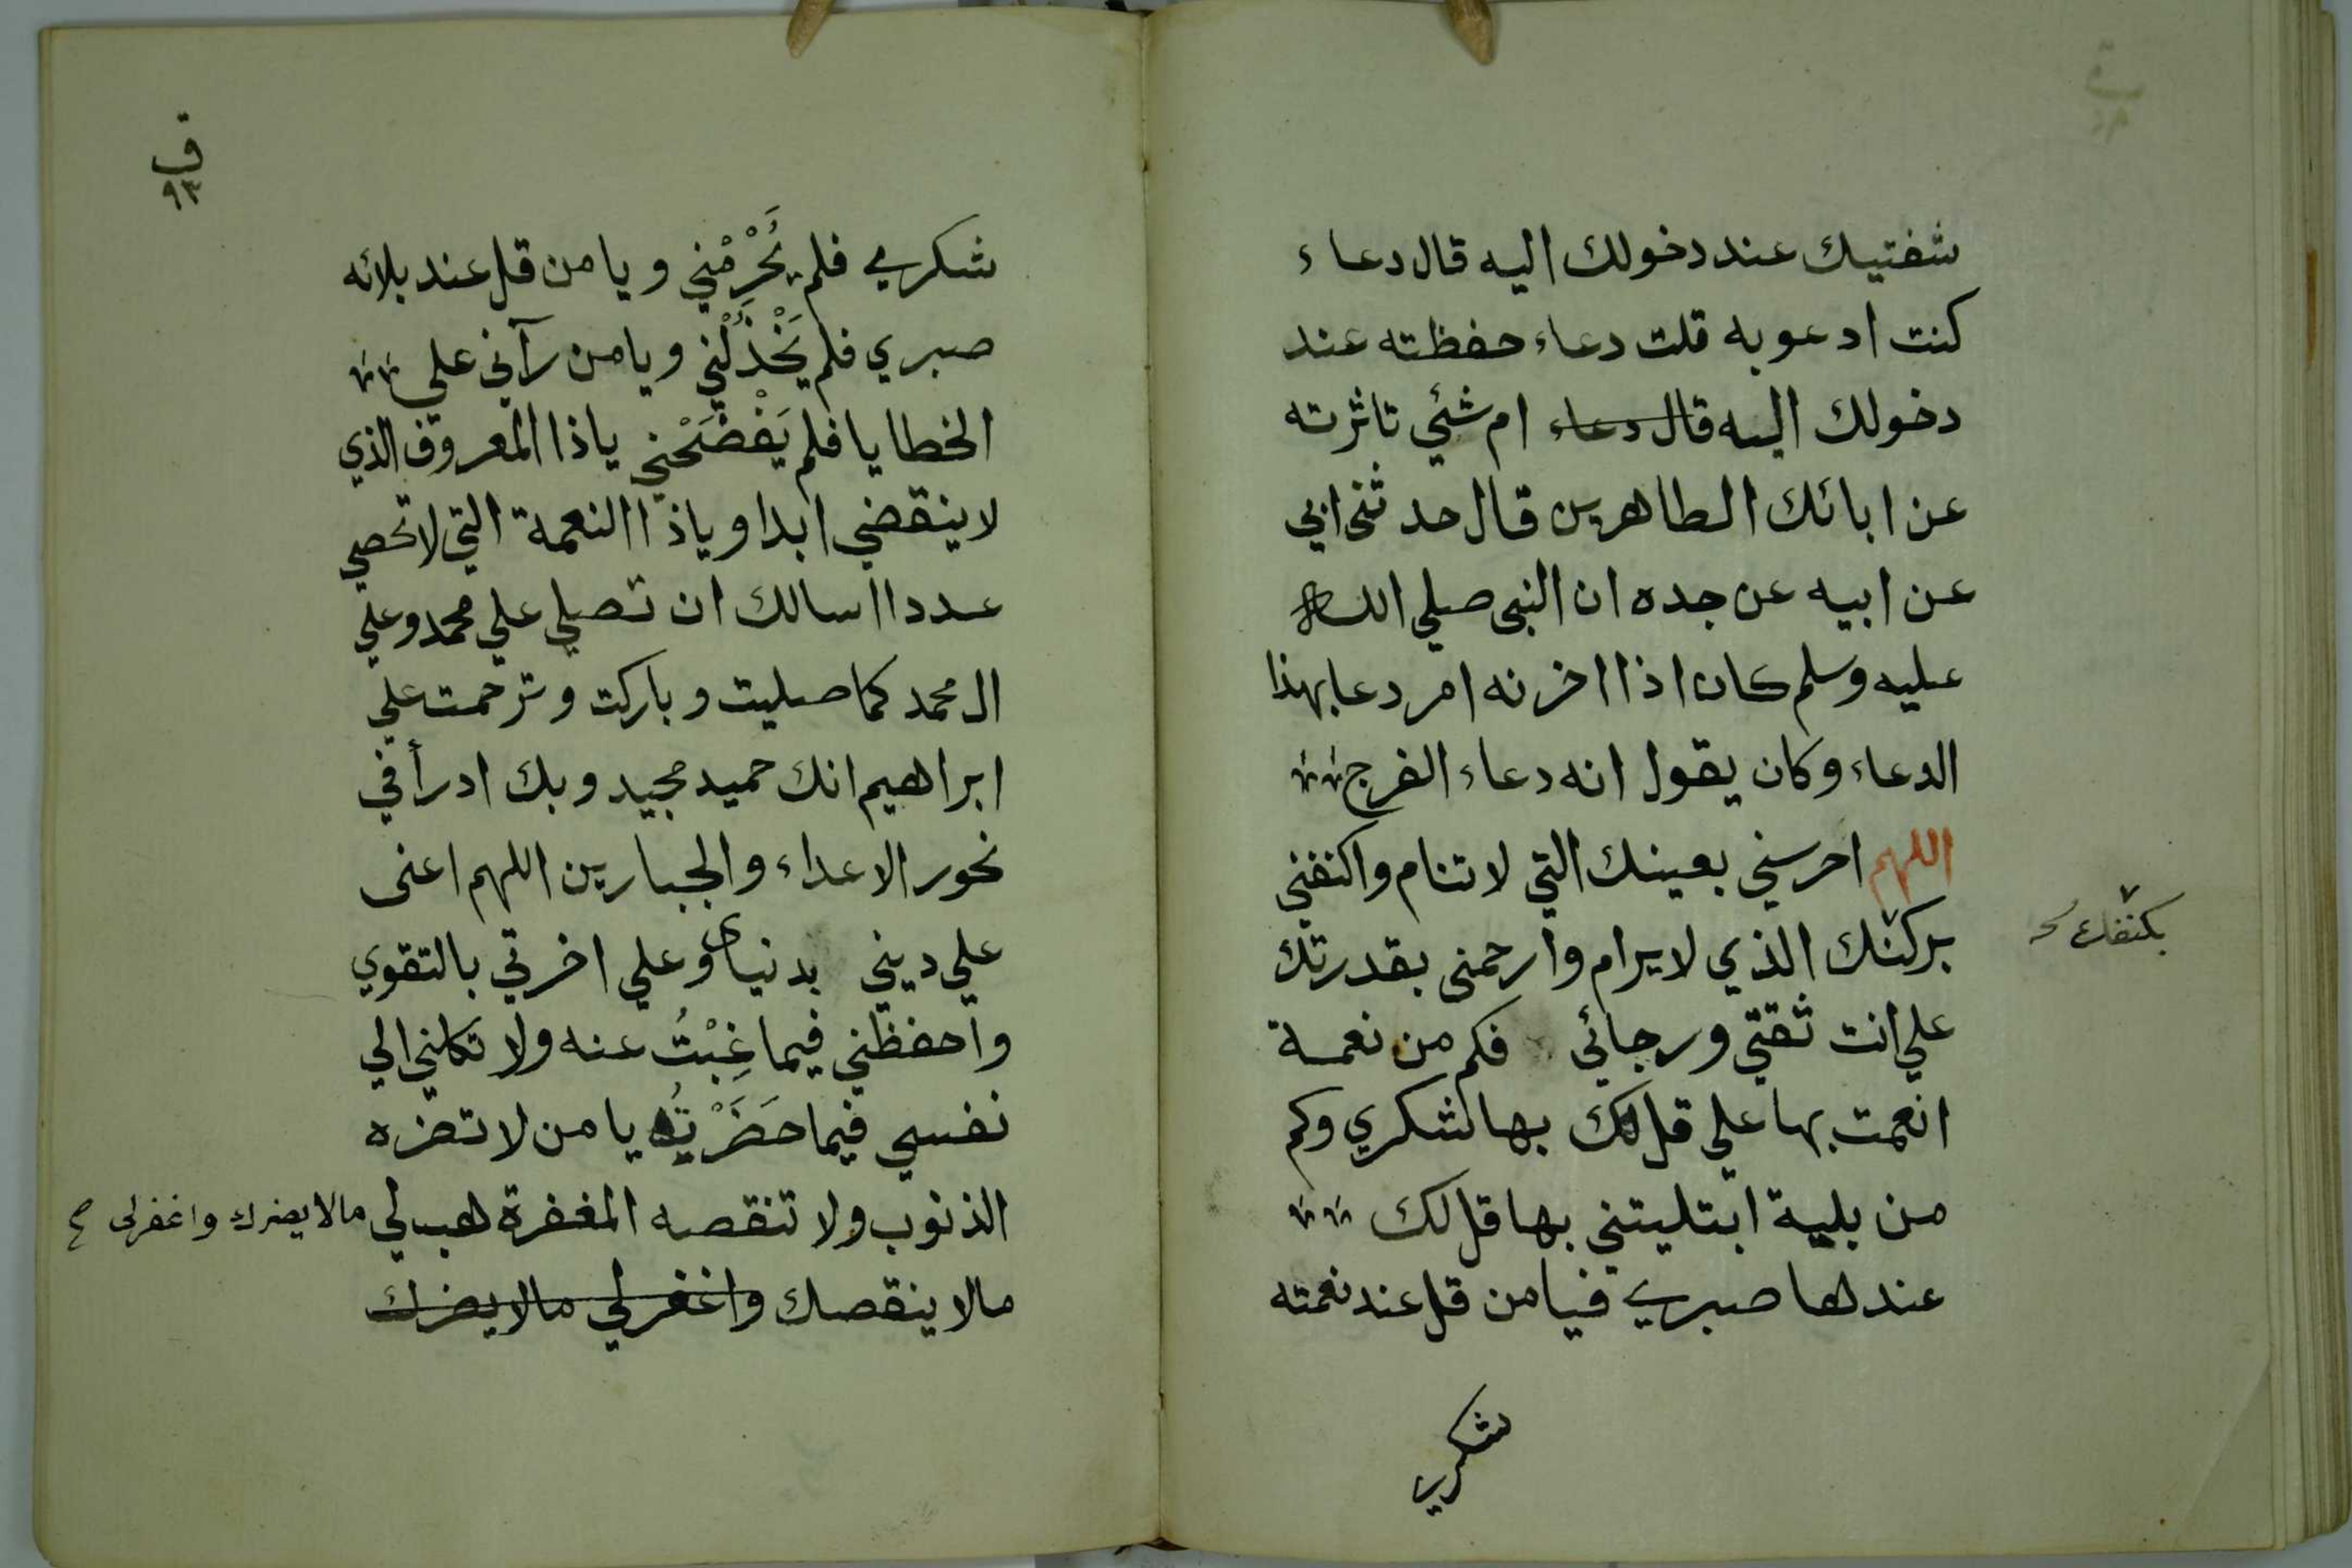 شفتيك عند دخولك اليه قال دعاء
كنت ادعو به قلت دعاء حفظته عند
دخولك اليه قال دعاء ام شئي تاثرته
عن ابائك الطاهرين قال حدثنى ابي
عن ابيه عن جده ان النبى صلي الله
عليه وسلم كان اذا اخزنه امر دعا بهذا
الدعاء وكان يقول انه دعاء الفرج
اللهم احرسني بعينك التي لا تنام واكنفني
بركنك الذي لا يرام وارحمنى بقدرتك
بكنفك
علي انت ثقتي ورجائي فكم من نعمة
انعمت بها علي قل لك بها شكري وكم
من بلية ابتليتني بها قل لك
عندها صبري فيا من قل عند نعمته
شكري
ق
٩٣
شكري فلم يَحْرِمْني ويا من قل عند بلائه
صبري فلم يَخْذُلْني ويا من رآني علي
الخطايا فلم يَفْضَحْني ياذا المعروف الذي
لا ينقضي ابدا وياذا النعمة التي لا تحصي
عددا اسالك ان تصلي علي محمد وعلي
ال محمد كما صليت وباركت وترحمت علي
ابراهيم انك حميد مجيد وبك ادرأ في
نحور الاعداء والجبارين اللهم اعنى
علي ديني بدنياي وعلي اخرتي بالتقوي
واحفظني فيما غِبْتُ عنه ولا تكلني الي
نفسي فيما حَضَرْتُه يا من لا تضره
الذنوب ولا تنقصه المغفرة هب لي مالا يضرك واغفرلى صح
مالا ينقصك واغفرلي مالا يضرك